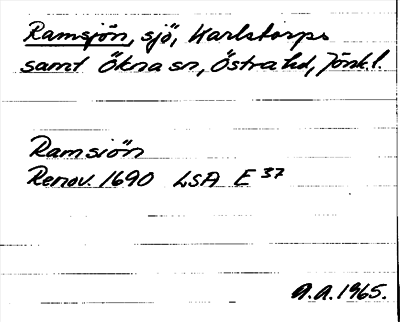 Ramsjön, sjö, Karlstorps
samt Ökna sn, Östra hd, Jönk.l.
Ramsiön
Renov. 1690 LSA E 37
A.A. 1965.